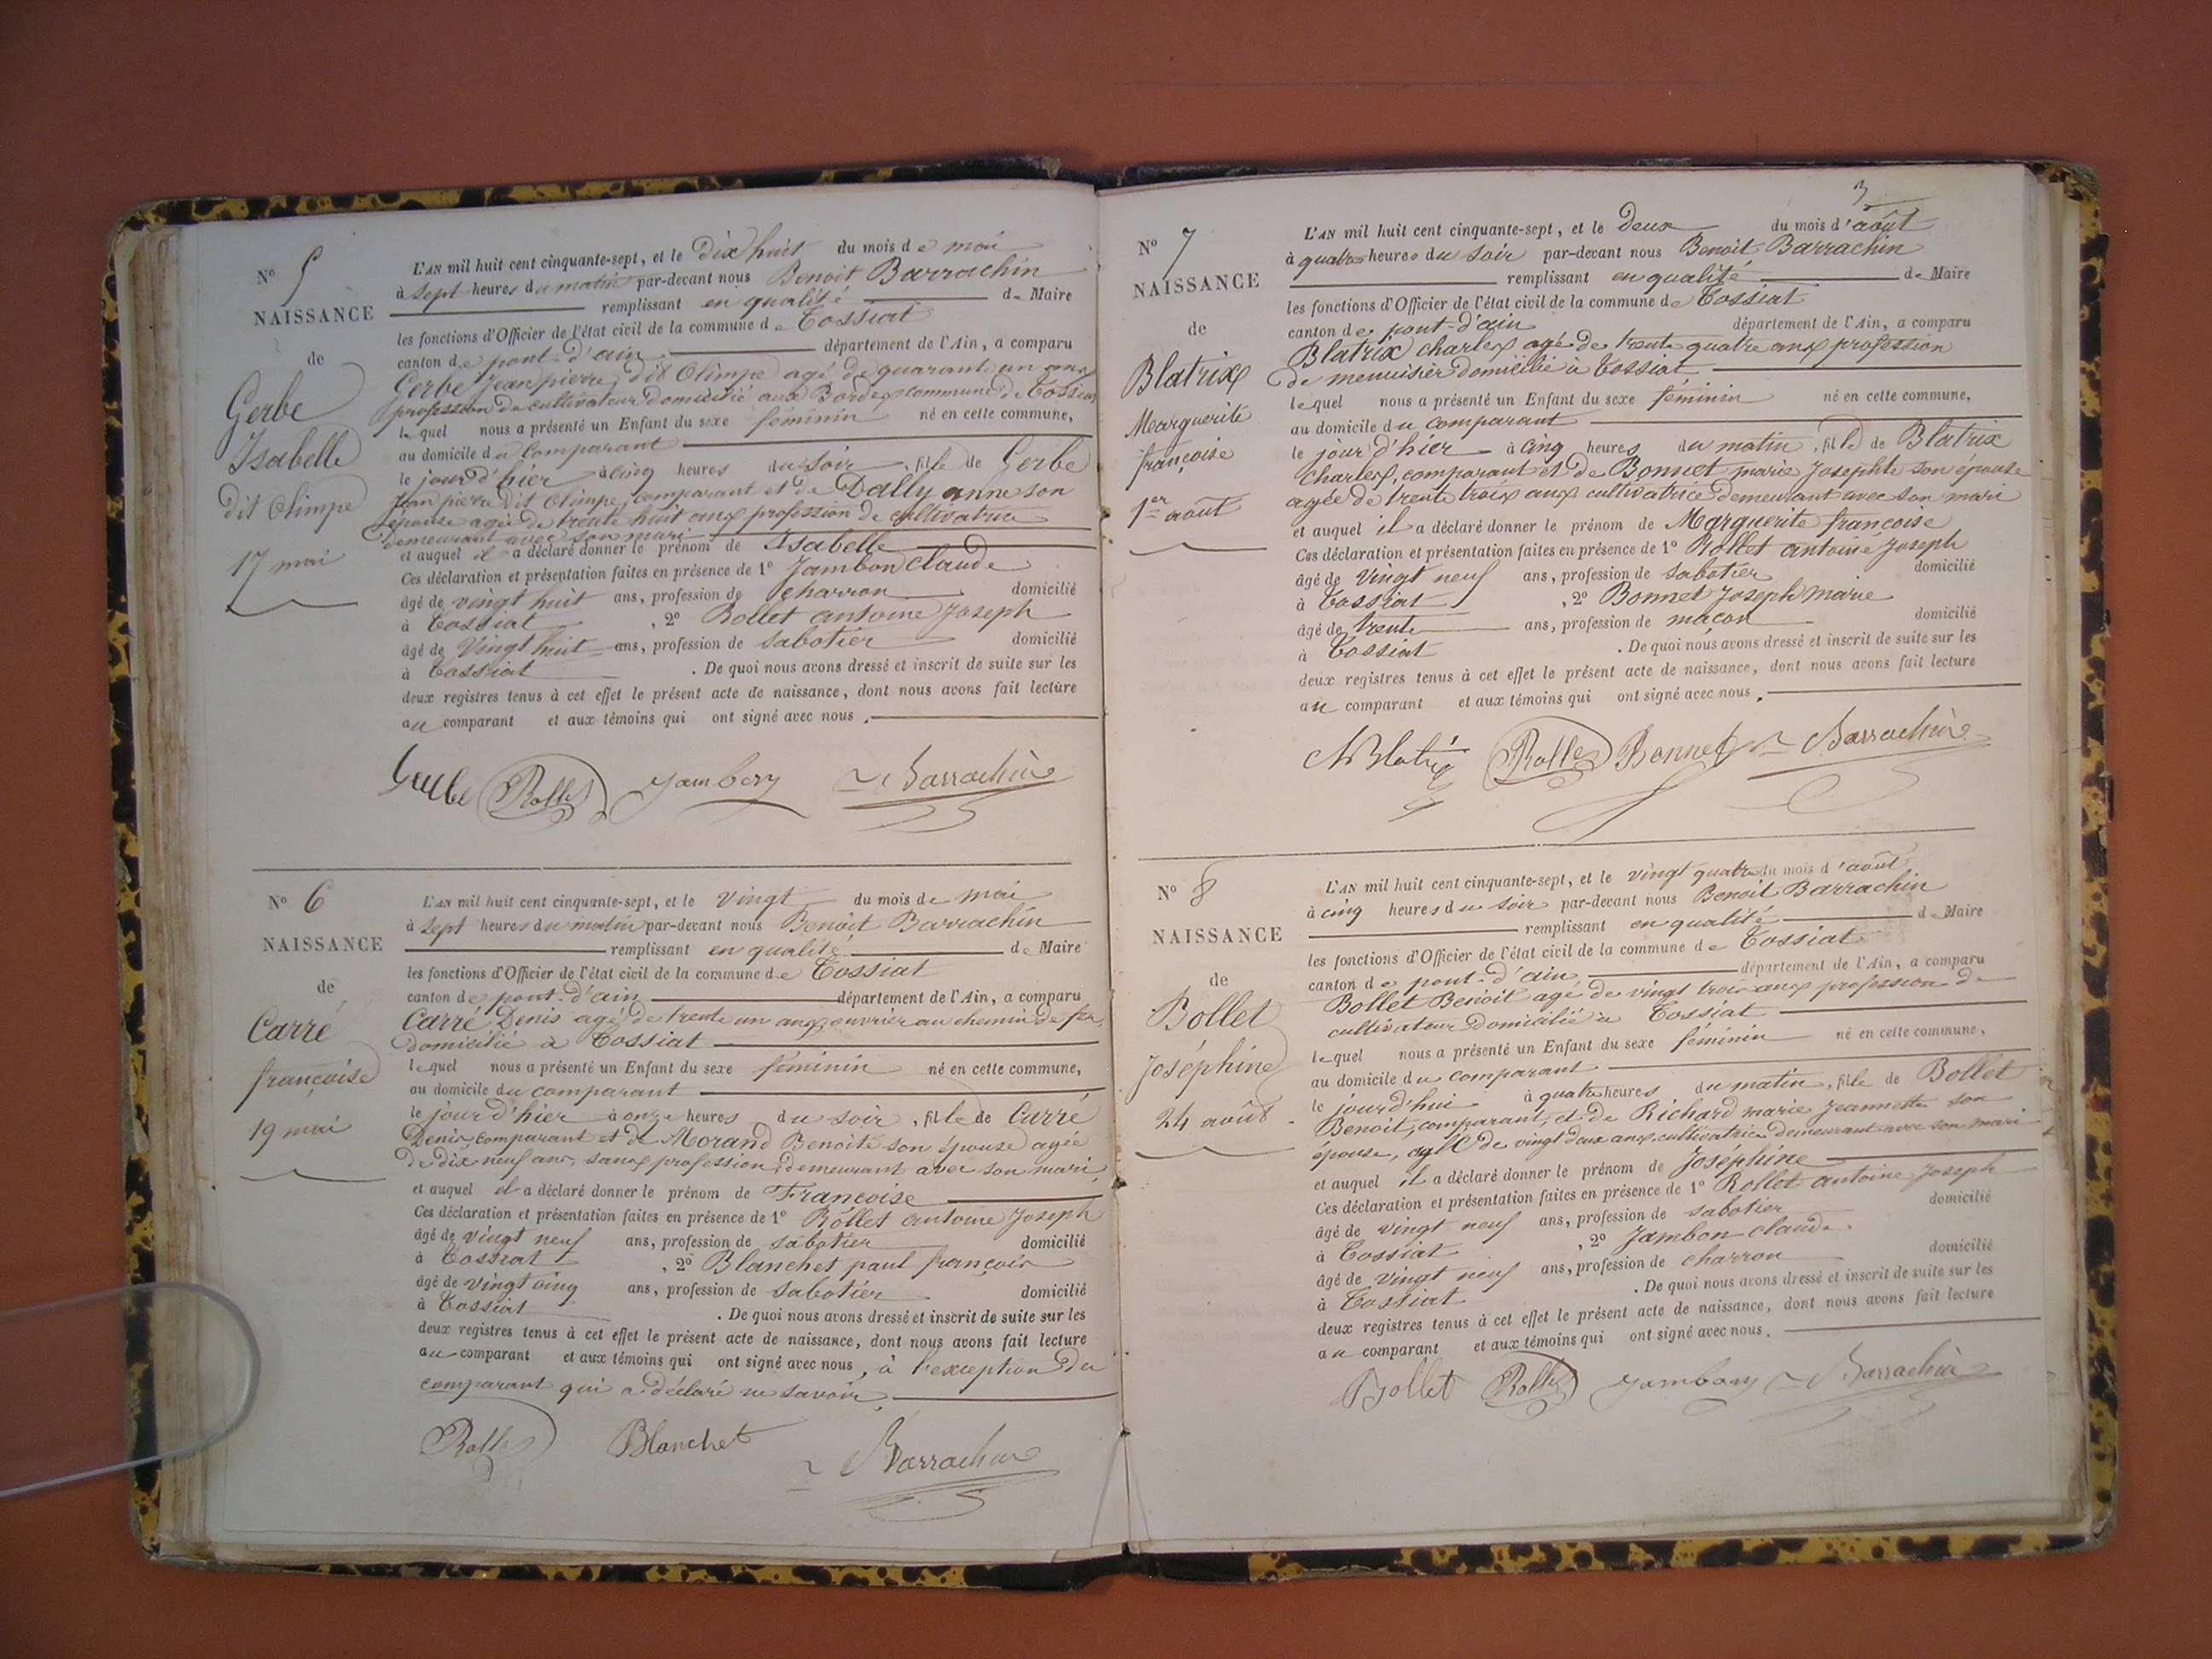 N° 5
NAISSANCE
de
Gerbe
Isabelle
dit Olimpe
17 mai
L'AN mil huit cent cinquante-sept, et le Dix huit du mois de mai
à sept heures du matin par-devant nous Benoit Barrachin
remplissant en qualité de Maire
les fonctions d'Officier de l'état civil de la commune de Tossiat
canton de pont-d'ain département de l'Ain, a comparu
Gerbe Jean pierre, dit Olimpe agé de quarante un ans
profession de cultivateur domicilié aux Bordes commune de Tossiat
lequel nous a présenté un Enfant du sexe féminin né en cette commune,
au domicile du Comparant
le jour d'hier à cinq heures du soir, fille de Gerbe
Jean pierre dit Olimpe, comparant et de Dally anne son
épouse agée de trente huit ans profession de cultivatrice
demeurant avec son mari
et auquel il a déclaré donner le prénom de Isabelle
Ces déclaration et présentation faites en présence de 1° Jambon Claude
âgé de vingt huit ans, profession de charron domicilié
à Tossiat, 2° Rollet antoine Joseph
âgé de Vingt huit ans, profession de sabotier domicilié
à Tossiat. De quoi nous avons dressé et inscrit de suite sur les
deux registres tenus à cet effet le présent acte de naissance, dont nous avons fait lecture
au comparant et aux témoins qui ont signé avec nous.
Gerbe Rollet Jambon Barrachin
N° 6
NAISSANCE
de
Carré
françoise
19 mai
L'AN mil huit cent cinquante-sept, et le vingt du mois de mai
à sept heures du matin par-devant nous Benoit Barrachin
remplissant en qualité de Maire
les fonctions d'Officier de l'état civil de la commune de Tossiat
canton de pont-d'ain département de l'Ain, a comparu
Carré Denis agé de trente un ans, ouvrier au chemin de fer,
domicilié à Tossiat
lequel nous a présenté un Enfant du sexe féminin né en cette commune,
au domicile du comparant
le jour d'hier à onze heures du soir, fille de Carré
Denis, comparant et de Morand Benoite son épouse agée
de dix-neuf ans, sans profession, demeurant avec son mari,
et auquel il a déclaré donner le prénom de Françoise
Ces déclaration et présentation faites en présence de 1° Rollet antoine Joseph
âgé de vingt neuf ans, profession de sabotier domicilié
à Tossiat, 2° Blanchet paul françois
âgé de vingt cinq ans, profession de sabotier domicilié
à Tossiat. De quoi nous avons dressé et inscrit de suite sur les
deux registres tenus à cet effet le présent acte de naissance, dont nous avons fait lecture
au comparant et aux témoins qui ont signé avec nous, à l'exception du
comparant qui a déclaré ne savoir.
Rollet Blanchet Barrachin
3
N° 7
NAISSANCE
de
Blatrix
Marguerite
françoise
1er août
L'AN mil huit cent cinquante-sept, et le Deux du mois d'août
à quatre heures du soir par-devant nous Benoit Barrachin
remplissant en qualité de Maire
les fonctions d'Officier de l'état civil de la commune de Tossiat
canton de pont-d'ain département de l'Ain, a comparu
Blatrix charles agé de trente quatre ans profession
de menuisier domicilié à Tossiat
lequel nous a présenté un Enfant du sexe féminin né en cette commune,
au domicile du comparant
le jour d'hier à cinq heures du matin, fille de Blatrix
Charles, comparant et de Bonnet marie Josephte son épouse
agée de trente trois ans cultivatrice demeurant avec son mari
et auquel il a déclaré donner le prénom de Marguerite françoise
Ces déclaration et présentation faites en présence de 1° Rollet antoine Joseph
âgé de vingt neuf ans, profession de sabotier domicilié
à Tossiat, 2° Bonnet Joseph Marie
âgé de trente ans, profession de maçon domicilié
à Tossiat. De quoi nous avons dressé et inscrit de suite sur les
deux registres tenus à cet effet le présent acte de naissance, dont nous avons fait lecture
au comparant et aux témoins qui ont signé avec nous.
Blatrix Rollet Bonnet Barrachin
N° 8
NAISSANCE
de
Bollet
Joséphine
24 août
L'AN mil huit cent cinquante-sept, et le vingt quatre du mois d'août
à cinq heures du soir par-devant nous Benoit Barrachin
remplissant en qualité de Maire
les fonctions d'Officier de l'état civil de la commune de Tossiat
canton de pont-d'ain département de l'Ain, a comparu
Bollet Benoit agé de vingt trois ans profession de
cultivateur domicilié à Tossiat
lequel nous a présenté un Enfant du sexe féminin né en cette commune,
au domicile du comparant
le jourd'hui à quatre heures du matin, fille de Bollet
Benoit, comparant, et de Richard marie Jeannette son
épouse, agée de vingt deux ans, cultivatrice demeurant avec son mari
et auquel il a déclaré donner le prénom de Joséphine
Ces déclaration et présentation faites en présence de 1° Rollet antoine Joseph
âgé de vingt neuf ans, profession de sabotier domicilié
à Tossiat, 2° Jambon claude
âgé de vingt neuf ans, profession de charron domicilié
à Tossiat. De quoi nous avons dressé et inscrit de suite sur les
deux registres tenus à cet effet le présent acte de naissance, dont nous avons fait lecture
au comparant et aux témoins qui ont signé avec nous.
Bollet Rollet Jambon Barrachin